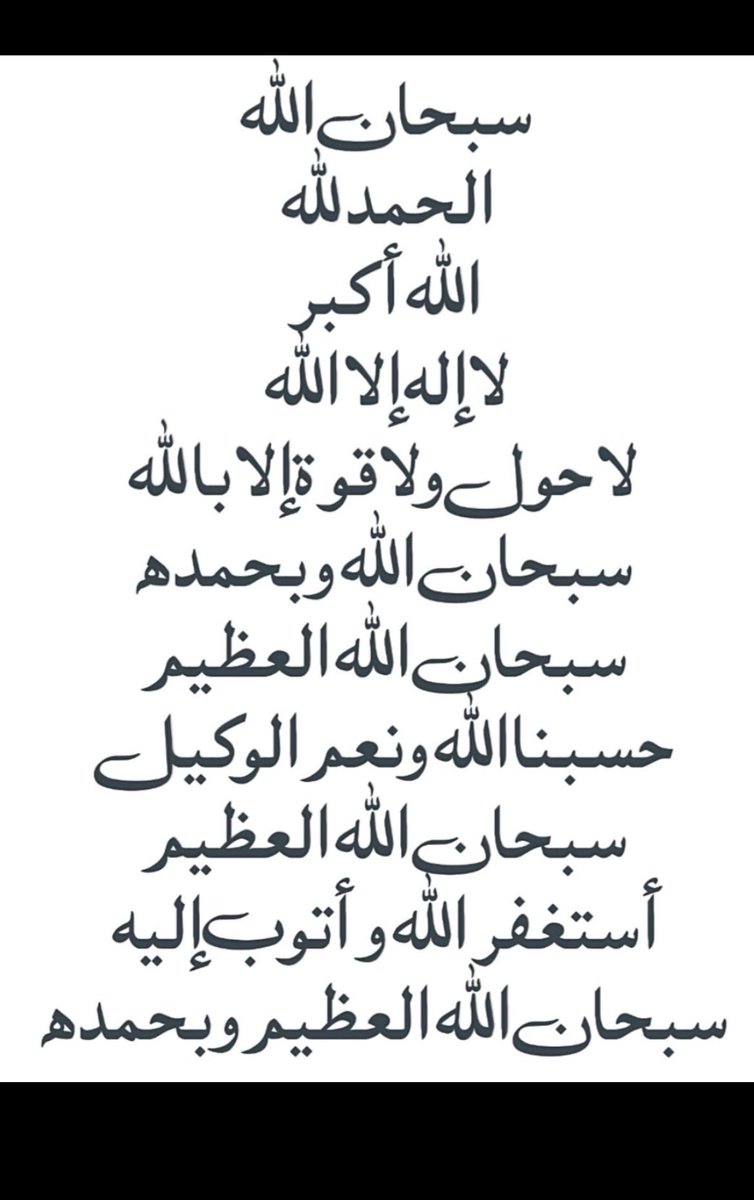 سبحان الله
الحمدلله
الله أكبر
لا إله إلا الله
لا حول ولا قوة إلا بالله
سبحان الله وبحمده
سبحان الله العظيم
حسبنا الله ونعم الوكيل
سبحان الله العظيم
أستغفر الله و أتوب إليه
سبحان الله العظيم وبحمده